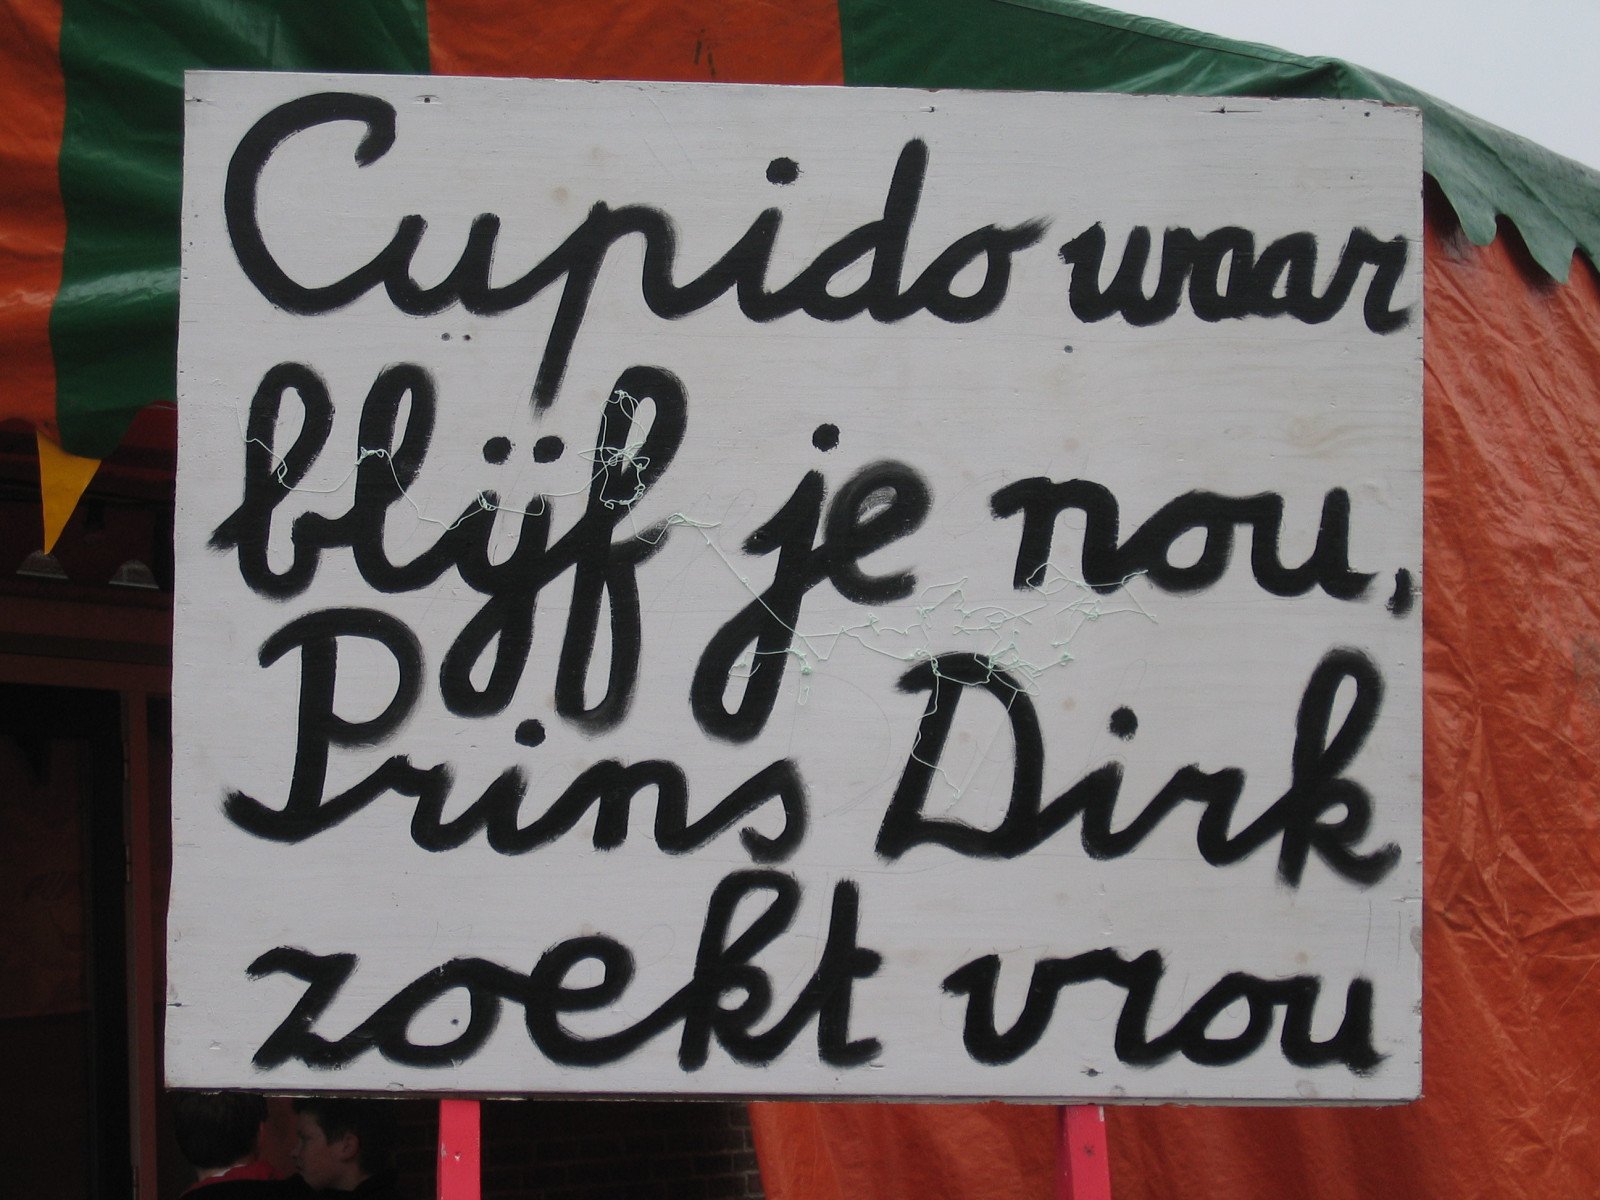 Cupido waar
blijf je nou,
Prins Dirk
zoekt vrou